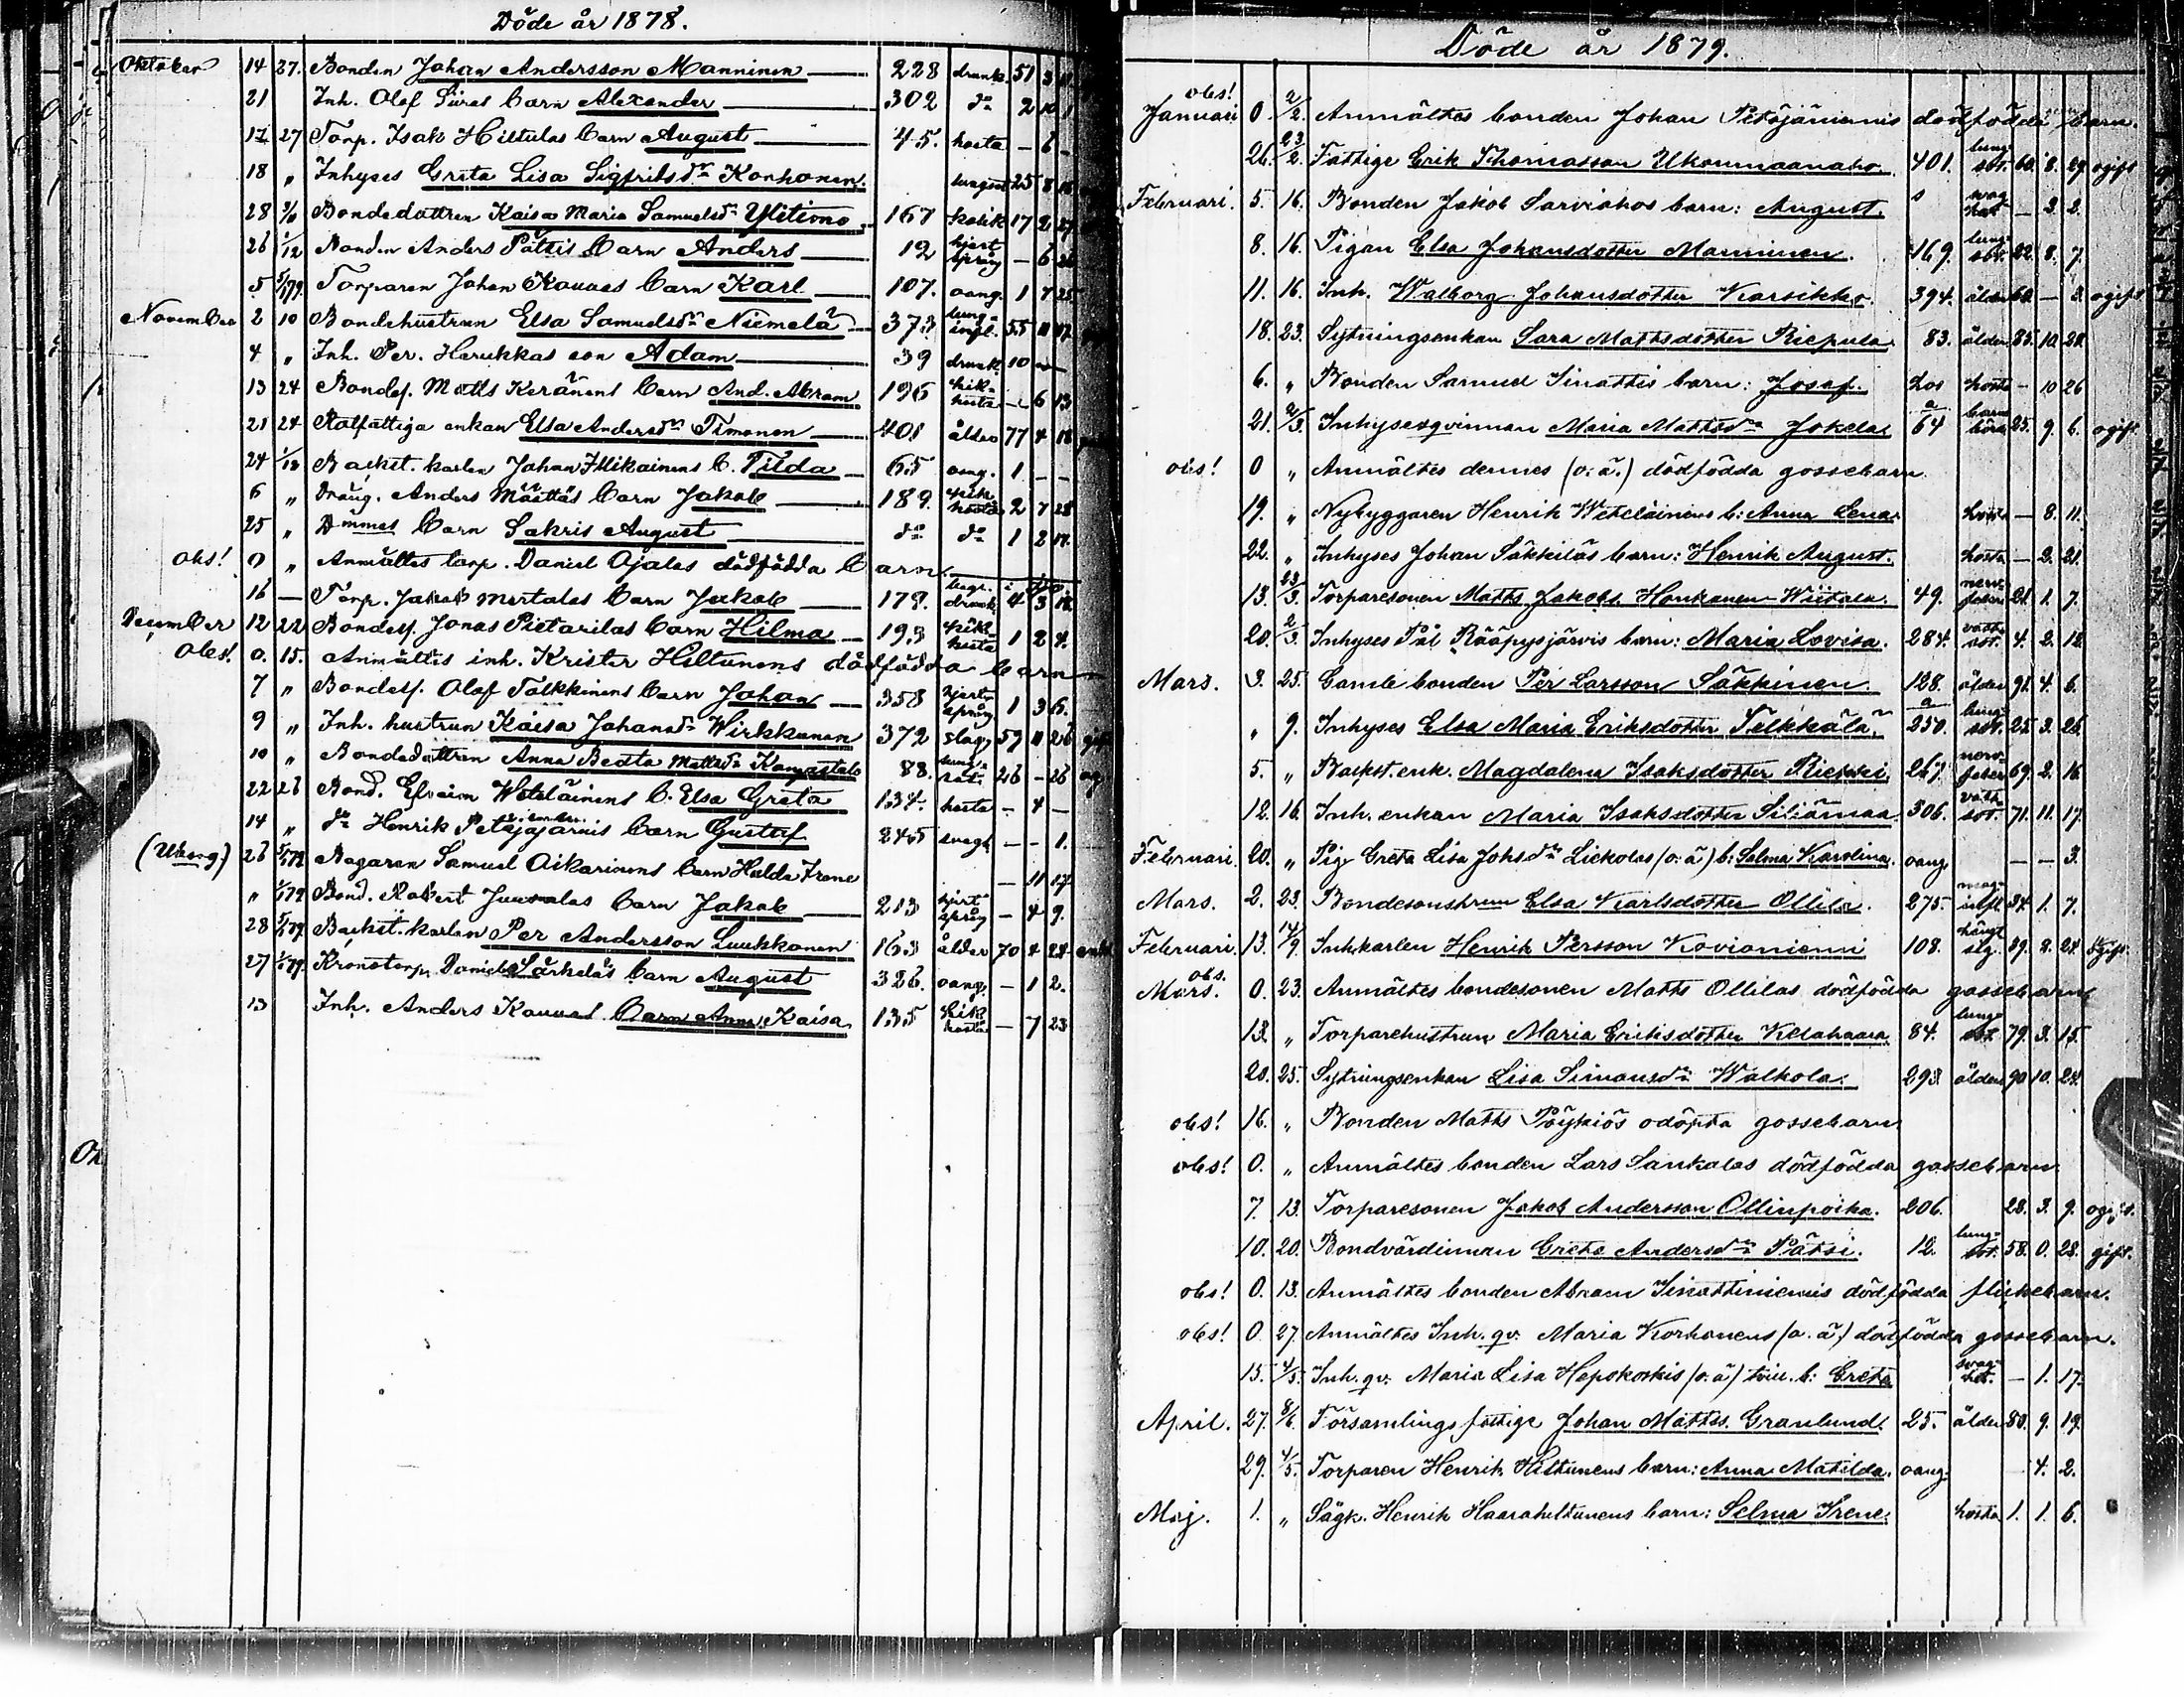 Döde år 1878.
Oktober 14 27. Bonden Johan Andersson Manninen 228 drunk. 51 3
21 Inh. Olof barn Alexander 302 do 2 10 1
17 27 Torp. Isak Hiltulas barn August 45. hosta – 6 –
18 " Inhyses Greta Lisa Sigfridsdr Korhonen. lungsot 25 8 18
28 Bondedottren Kaisa Maria Samuelsdr 167 kolik 17 2 27
26 1/12 Bonden Anders Pättis barn Anders 12 hjert språng – 6 26
5 5/1 79 Torparen Johan Kauaes barn Karl 107. oang. 1 7 25
November 2 10 Bondehustrun Elsa Samuelsdr Niemelä 373 lung- infl. 55 11 17
4 " Inh. Per. Harukkas son Adam 39 drunk. 10
13 24 Bondes. Matts Keränens barn And. Abram 196 kik- hosta – 6 13
21 24 Rotfattiga enkan Elsa Andersdr Timonen 401 ålder 77 4 18
24 1/12 Backst. karlen Johan Mikainens b. Tilda 65 oang. 1 – –
6 " Dräng. Anders Määttäs barn Jakob 189. kik hosta 2 7 28
25 " Dmmes barn Sakris August do do 1 2 17.
obs! 0 " Anmältes torp. Daniel Ojalas dödfödda barn.
16 – Torp. Jakob Mertalas barn Jakob 179. drunk 4 3 18
December 12 22 Bondes. Jonas Pietarilas barn Hilma 193 kik- hosta 1 2 4.
Obs! 0. 15. Anmältes inh. Krister Hiltunens dödfödda barn
7 " Bondes. Olof Tolkkinens barn Johan 358 hjert språng 1 3 6.
9 " Inh. hustrun Kaisa Johansdr Wirkkunen 372 slag 59 11 26
10 " Bondedottren Anna Beata Mattsdr Kangastalo 88. lung- sot. 26 – 26
22 26 Bond. Efraim Weteläinens b. Elsa Greta 134. hosta – 4 –
14 " do Henrik Petäjäjärvis barn Gustaf 245 svagh. – – 1.
(Uleåbg.) 26 5/1 79 Bagaren Samuel Oikarinens barn Hulda Irene – 11 17.
" 1/1 79 Bond. Robert Juusolas barn Jakob 213 hjert- språng – 4 9.
28 5/1 79 Backst. karlen Per Andersson Luukkonen 163 ålder 70 4 28 enkl.
27 1/1 79. Kronotorp. Daniel Särkeläs barn August 326. oang. – 1 2.
13 Inh. Anders Kauaes barn Anna Kaisa 135 kik hosta – 7 23
Döde år 1879.
obs!
Januari 0. 2/2. Anmältes bonden Johan Petäjäniemis dödfödda barn.
26. 23/2. Fattige Erik Thomasson Ukonmaanaho 401. lung sot. 60. 8. 29. ogift
Februari. 5. 16. Bonden Jakob Sarviahos barn: August. svag het – 3. 2.
8. 16. Pigan Elsa Johansdotter Manninen. 169. lung- sot. 22. 8. 7.
11. 16. Inh. Walborg Johansdotter Karsikko. 394. ålder 60. – 3. ogift
18. 23. Sytningsenkan Sara Mattsdotter Riepula. 83. ålder 85. 10. 28.
6. " Bonden Samuel Sinattis barn: Josef. hosta – 10 26
21. 2/3. Inhysesqvinnan Maria Mattsdr Jokela. 64 barns börd 25. 9. 6. ogift
obs! 0 " Anmältes dennes (o.ä.) dödfödda gossebarn
19. " Nybyggaren Henrik Weteläinens b: Anna Lena. hosta – 8. 11.
22. " Inhyses Johan Säkkiläs barn: Henrik August. hosta – 2. 21.
13. 23/3. Torparesonen Matts Jakobs. Honkanen-Wiitala. 49. nerv. feber 21. 1. 7.
20. 2/3. Inhyses Pål Rääpysjärvis barn: Maria Lovisa. 284. vatt sot. 4. 2. 18.
Mars. 3. 25. Gamle bonden Per Larsson Säkkinen. 128. ålder 91. 4. 6.
" 9. Inhyses Elsa Maria Eriksdotter Telkkälä. 250. lung- sot. 25. 3. 26.
5. " Backst. enk. Magdalena Isaksdotter Riekki 267. nerv- feber 69. 2. 16.
12. 16. Inh. enkan Maria Isaksdotter Siliämaa 306. vatt sot. 71. 11. 17.
Februari. 20. " Pig. Greta Lisa Johsdr Liekolas (o.ä) b: Selma Karolina. oang. – – 3.
Mars. 2. 23. Bondesonshrun Elsa Karlsdotter Ollila. 275. mag- infl. 34. 1. 7.
Februari. 13. 14/9. Inh.karlen Henrik Persson Kovioniemi 108. hängt sig. 39. 8. 24. ogift.
obs.
Mars. 0. 23. Anmältes bondesonen Matts Ollilas dödfödda gossebarn
13. " Torparehustrun Maria Eriksdotter Kelahaara. 84. lung- sot. 79. 3. 15.
20. 25. Sytningsenkan Lisa Simonsdr Walkola. 293. ålder 90. 10. 24.
obs! 16. " Bonden Matts Pöykiös odöpta gossebarn
obs! 0. " Anmältes bonden Lars Sankalas dödfödda gossebarn.
7. 13. Torparesonen Jakob Andersson Ollinpoika. 206. 28. 3. 9. ogift.
10. 20. Bondvärdinnan Greta Andersdr Pätsi. 12. lung- sot. 58. 0. 28. gift.
obs! 0. 13. Anmältes bonden Abram Sinettiniemis dödfödda flickebarn.
obs! 0. 27. Anmältes Inh. qv. Maria Korhonens (o.ä.) dödfödda gossebarn.
15. 4/5. Inh. qv. Maria Lisa Hepokoskis (o.ä) tvill. b: Greta svag- het. – 1. 17.
April. 27. 8/6. Församlings fattige Johan Matts. Granlund. 25. ålder 80. 9. 19.
29. 4/5. Torparen Henrik Hiltunens barn: Anna Matilda. oang. – 4. 2.
Maj. 1. " Sågk. Henrik Haarahiltunens barn: Selma Irene. hosta 1. 1. 6.